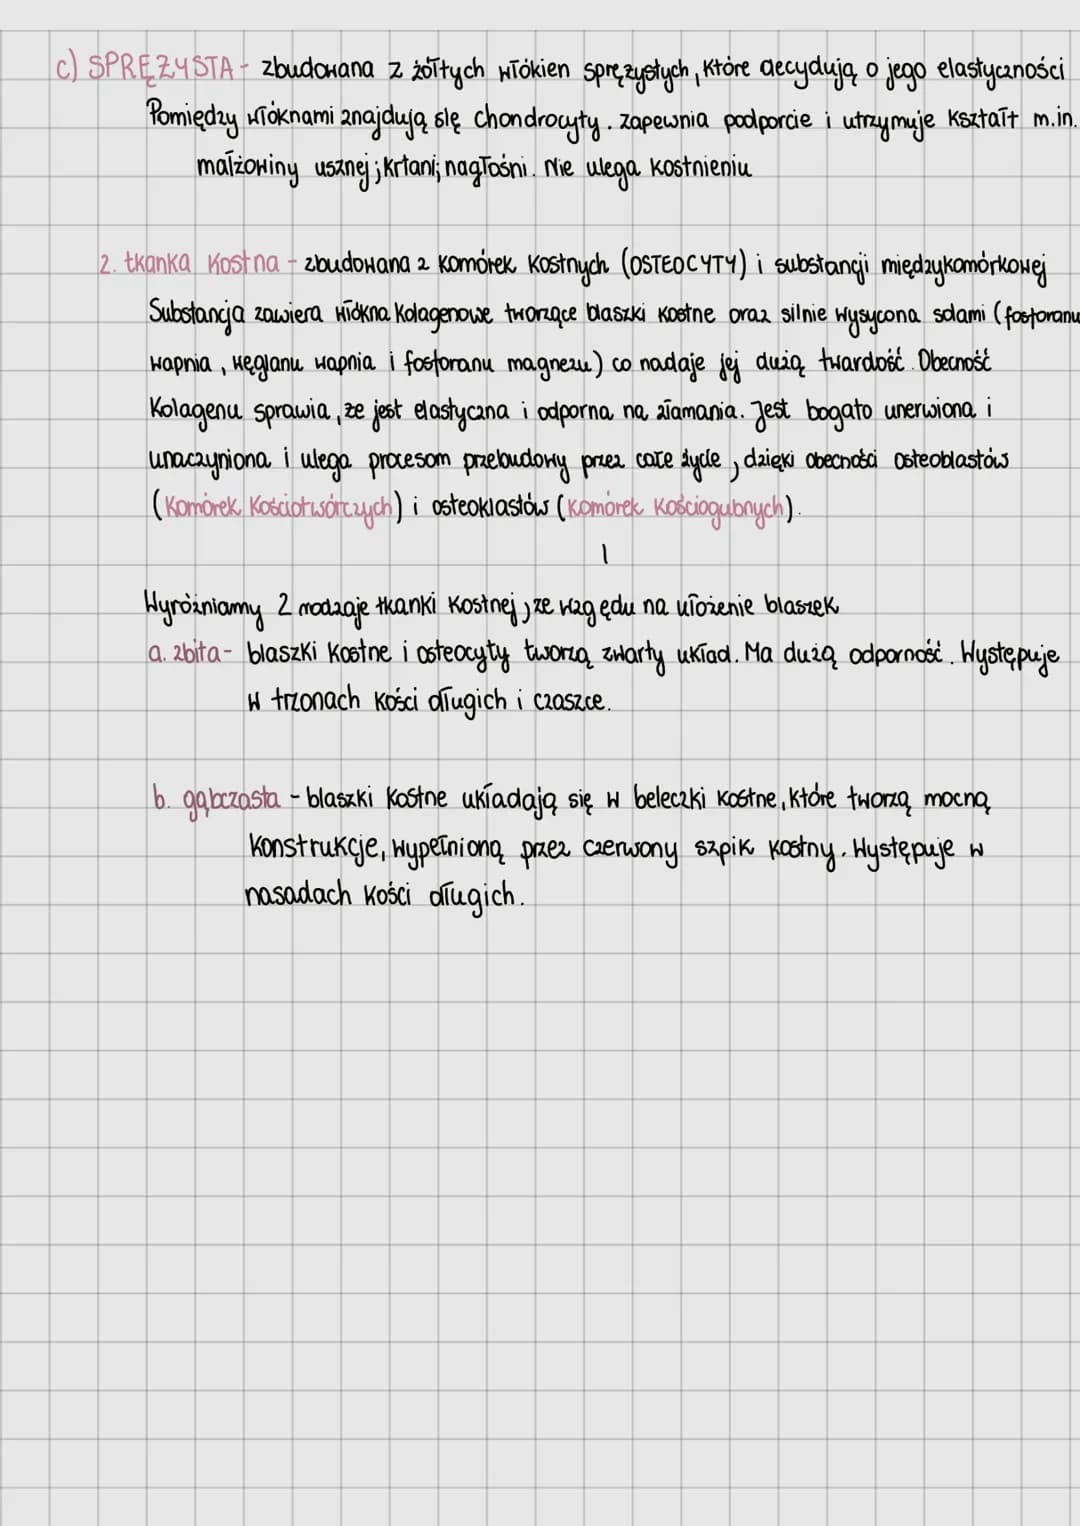 c) SPRĘŻYSTA - zbudowana z żółtych włókien sprężystych, które decydują o jego elastyczności
Pomiędzy włóknami znajdują się chondrocyty. zapewnia podporcie i utrzymuje kształt m.in.
małżowiny usznej; krtani; nagłośni. Nie ulega kostnieniu
2. tkanka kostna - zbudowana z komórek kostnych (OSTEOCYTY) i substancji międzykomórkowej
Substancja zawiera włókna kolagenowe tworzące blaszki kostne oraz silnie wysycona solami (fosforanu
wapnia, węglanu wapnia i fosforanu magnezu) co nadaje jej dużą twardość. Obecność
kolagenu sprawia, że jest elastyczna i odporna na złamania. Jest bogato unerwiona i
unaczyniona i ulega procesom przebudowy przez całe życie, dzięki obecności osteoblastów
(komórek kościotwórczych) i osteoklastów (komórek kościogubnych).
Wyróżniamy 2 rodzaje tkanki kostnej, ze względu na ułożenie blaszek
a. zbita - blaszki kostne i osteocyty tworzą zwarty układ. Ma dużą odporność. Występuje
w trzonach kości długich i czaszce.
b. gąbczasta - blaszki kostne układają się w beleczki kostne, które tworzą mocną
konstrukcje, wypełnioną przez czerwony szpik kostny. Występuje w
nasadach kości długich.